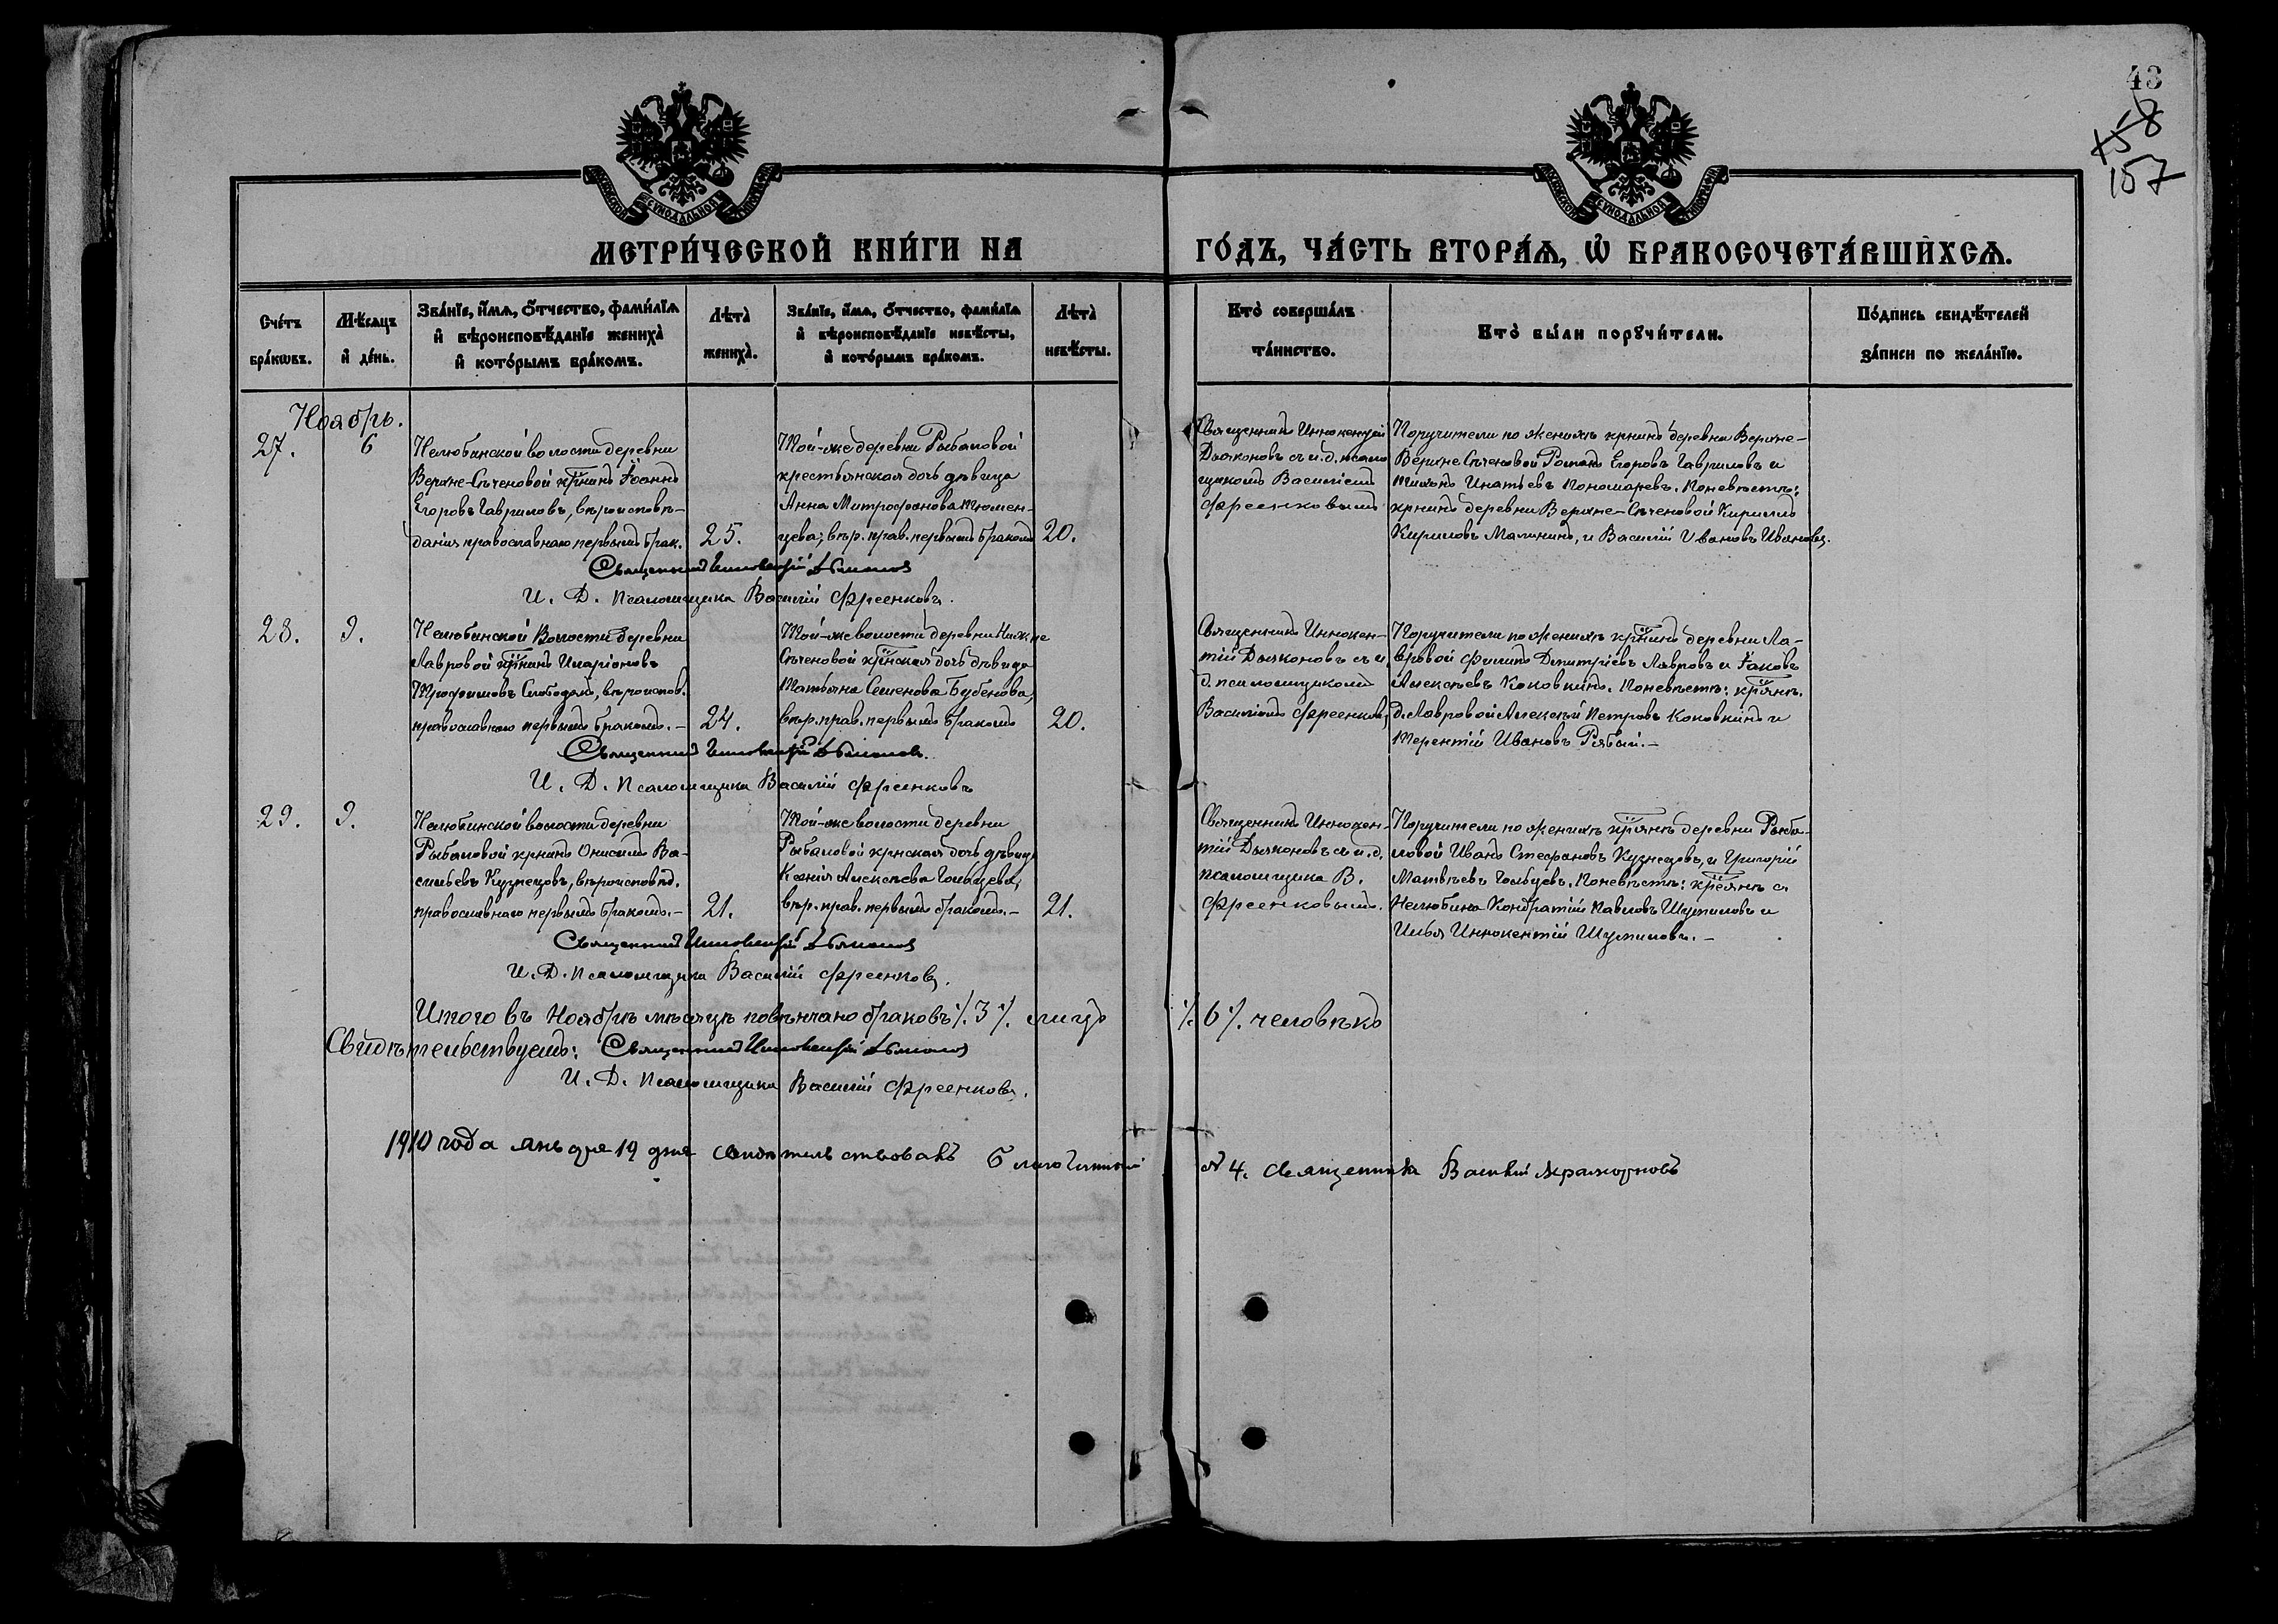 43
158
157
МОСКОВСКОЙ СѴНОДАЛЬНОЙ ТИПОГРАФІИ
МОСКОВСКОЙ СѴНОДАЛЬНОЙ ТИПОГРАФІИ
МЕТРИ́ЧЕСКОЙ КНИ́ГИ НА ГО́ДЪ, ЧА́СТЬ ВТОРА́Ѧ, Ѽ БРАКОСОЧЕТА́ВШИХСѦ.
Сче́тъ бра́кѡвъ.
Мѣ́сѧцъ и҆ де́нь.
Зва́нїе, и҆́мѧ, ѻ҆́тчество, фами́лїѧ
и҆ вѣроисповѣ́данїе жениха̀
и҆ кото́рымъ бра́комъ.
Лѣта̀ жениха̀.
Зва́нїе, и҆́мѧ, ѻ҆́тчество, фами́лїѧ
и҆ вѣроисповѣ́данїе невѣ́сты,
и҆ кото́рымъ бра́комъ.
Лѣта̀ невѣ́сты.
Кто̀ соверша́лъ
та́инство.
Кто̀ бы́ли порꙋчи́тели.
По́дпись свидѣ́телей
за́писи по жела́нїю.
Ноябрь.
27.
6
Нелюбинской волости деревни
Верхне-Сѣченовой кр̅нинъ Іоаннъ
Егоровъ Гавриловъ, вѣроисповѣ-
данія православнаго первымъ брак.
25.
Той-же деревни Рыбаловой
крестьянская дочь дѣвица
Анна Митрофанова Тюмен-
цева, вѣр. прав. первымъ бракомъ
20.
Священникъ Иннокентій
Дьяконовъ съ и. д. псало
щикомъ Василіемъ
Фреенковымъ
Поручители по женихѣ крнинъ деревни Верхне-
Верхне Сѣченовой Романъ Егоровъ Гавриловъ и
Тихонъ Игнатьевъ Пономаревъ. По невѣстѣ:
крнинъ деревни Верхне-Сѣченовой Кириллъ
Кириловъ Малининъ, и Василій Ивановъ Ивановъ.
Священникъ Иннокентій Дьяконовъ
И. Д. Псаломщика Василій Фреенковъ.
28.
9.
Нелюбинской Волости деревни
Лавровой кр̅нинъ Иларіоновъ
Трофимовъ Слободянъ, вѣроиспов.
православнаго первымъ бракомъ.-
24.
Той-же волости деревни Нижне
Сѣченовой кр̅нская дочь дѣвица
Татьяна Семенова Бубенова,
вѣр. прав. первымъ бракомъ
20.
Священникъ Иннокен-
тій Дьяконовъ съ и.
д. псаломщикомъ
Василіемъ Фреенков.
Поручители по женихѣ кр̅нинъ деревни Ла-
вровой Филипъ Дмитріевъ Лавровъ и Іаковъ
Алексѣевъ Коковкинъ. По невѣстѣ: кр̅янѣ.
д. Лавровой Алексѣй Петровъ Коковкинъ и
Терентій Ивановъ Рябый.-
Священникъ Иннокентій Дьяконовъ.
И. Д. Псаломщика Василій Фреенковъ
29.
9.
Нелюбинской волости деревни
Рыбаловой крнинъ Онисимъ Ва-
сильевъ Кузнецовъ, вѣроисповѣд.
православнаго первымъ бракомъ.-
21.
Той-же волости деревни
Рыбаловой крнская дочь дѣвица
Ксенія Алексѣева Голбцева,
вѣр. прав. первымъ бракомъ.-
21.
Священникъ Иннокен-
тій Дьяконовъ съ и. д.
псаломщика В.
Фреенковымъ.
Поручители по женихѣ кр̅янѣ деревни Рыба-
ловой Иванъ Стефановъ Кузнецовъ, и Григорій
Матвѣевъ Голбцевъ. По невѣстѣ: кр̅еянѣ с.
Нелюбина Кондратій Павловъ Шумиловъ и
Илья Иннокентій Шумиловъ.-
Священникъ Иннокентій Дьяконовъ
И. Д. Псаломщика Василій Фреенковъ.
Итого въ Ноябрѣ мѣсяцѣ повѣнчано браковъ ٪ 3 ٪ лицъ ٪ 6 ٪ человѣкъ
Свидѣтельствуемъ: Священникъ Иннокентій Дьяконовъ
И. Д. Псаломщика Василій Фреенковъ.
1910 года января 19 дня свидѣтельствовалъ Благочинный № 4. священникъ Василій